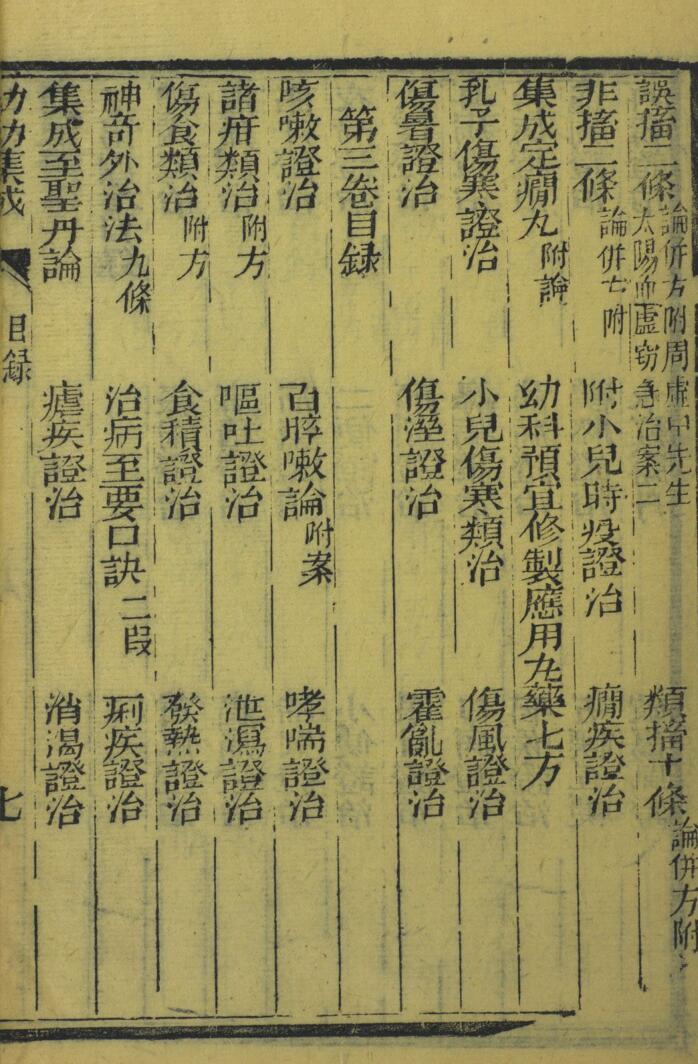 誤搐二條 論併方附周虛中先生太陽血虛窃急治案二 類搐十條 論併方附
非搐二條 論併方附 附小兒時疫證治 癇疾證治
集成定癇丸 附論 幼科預宜修製應用丸藥七方
乳子傷寒證治 小兒傷寒類治 傷風證治
傷暑證治 傷溼證治 霍亂證治
第三卷目録
咳嗽證治 百晬嗽論 附案 哮喘證治
諸疳類治 附方 嘔吐證治 泄瀉證治
傷食類治 附方 食積證治 發熱證治
神奇外治法 九條 治病至要口訣 二段 痢疾證治
集成至聖丹論 瘧疾證治 消渴證治
幼幼集成 目録 七